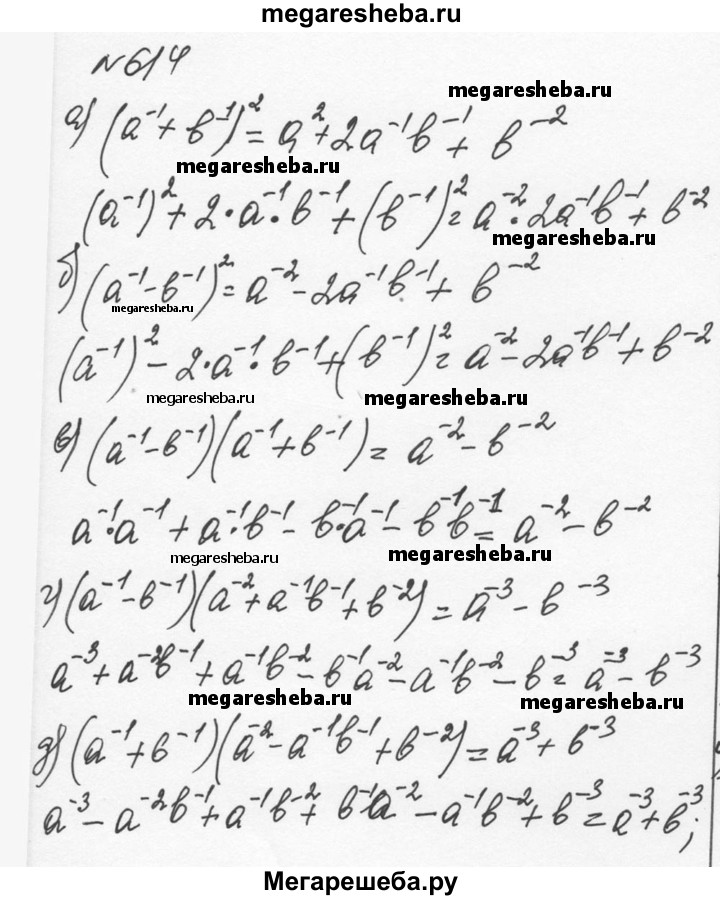 megaresheba.ru
№614
megaresheba.ru
а) (a⁻¹ + b⁻¹)² = a² + 2a⁻¹b⁻¹ + b⁻²
megaresheba.ru
(a⁻¹)² + 2·a⁻¹·b⁻¹ + (b⁻¹)² = a⁻²·2a⁻¹b⁻¹ + b⁻²
megaresheba.ru
б) (a⁻¹ - b⁻¹)² = a⁻² - 2a⁻¹b⁻¹ + b⁻²
megaresheba.ru
(a⁻¹)² - 2·a⁻¹·b⁻¹ + (b⁻¹)² = a⁻² - 2a⁻¹b⁻¹ + b⁻²
megaresheba.ru megaresheba.ru
в) (a⁻¹ - b⁻¹)(a⁻¹ + b⁻¹) = a⁻² - b⁻²
a⁻¹·a⁻¹ + a⁻¹·b⁻¹ - b⁻¹·a⁻¹ - b⁻¹b⁻¹ = a⁻² - b⁻²
megaresheba.ru megaresheba.ru
г) (a⁻¹ - b⁻¹)(a⁻² + a⁻¹b⁻¹ + b⁻²) = a⁻³ - b⁻³
a⁻³ + a⁻²b⁻¹ + a⁻¹b⁻² - b⁻¹a⁻² - a⁻¹b⁻² - b⁻³ = a⁻³ - b⁻³
megaresheba.ru megaresheba.ru
д) (a⁻¹ + b⁻¹)(a⁻² - a⁻¹b⁻¹ + b⁻²) = a⁻³ + b⁻³
a⁻³ - a⁻²b⁻¹ + a⁻¹b⁻² + b⁻¹a⁻² - a⁻¹b⁻² + b⁻³ = a⁻³ + b⁻³;
Мегарешеба.ру